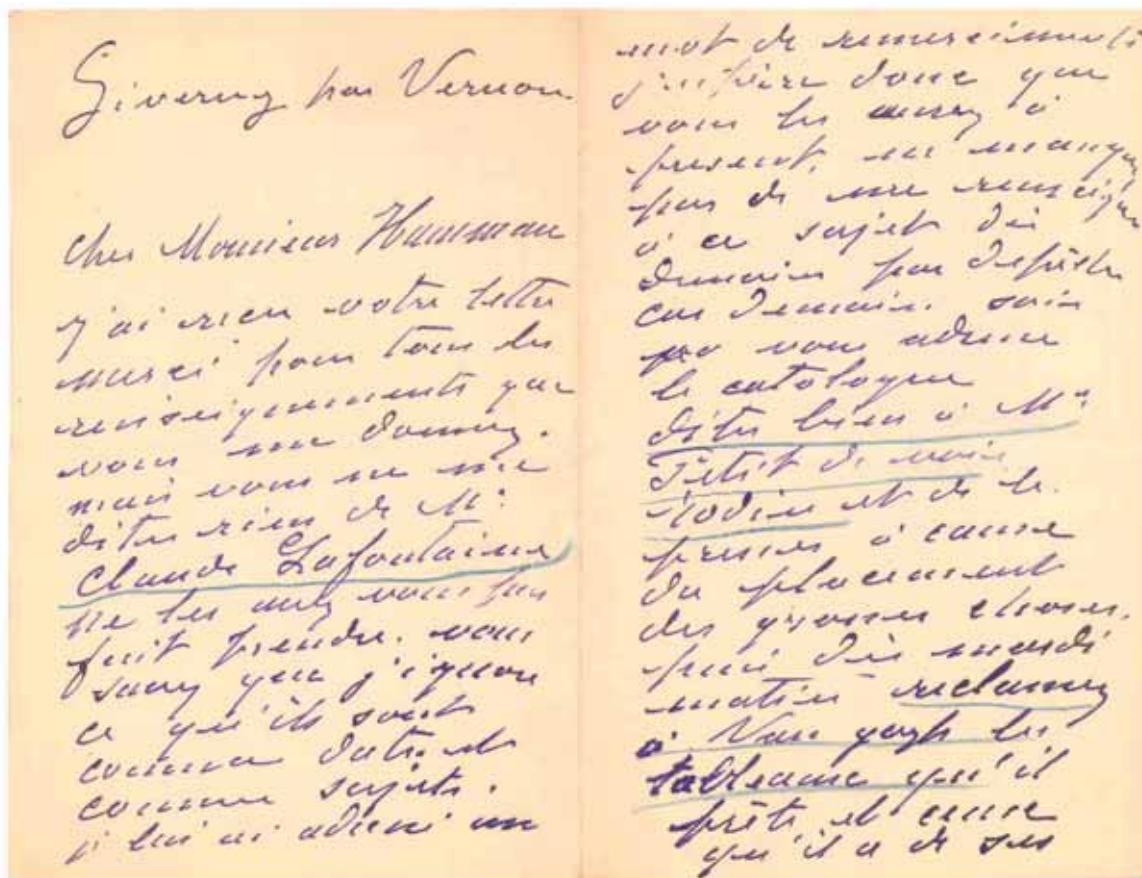 Giverny par Vernon.
Cher Monsieur Hamman
j'ai reçu votre lettre
merci pour tous les
renseignements que
vous me donnez.
mais vous ne me
dites rien de Mr
Claude Lafontaine
ne les avez vous pas
fait prendre. vous
savez que j'ignore
ce qu'ils sont
comme date et
comme sujets.
je lui ai adressé un
mot de remerciements
j'espère donc que
vous les aurez à
présent, ne manquez
pas de me renseigner
à ce sujet dès
demain par dépêche
car demain soir
vous adresse
le catalogue
dites bien à Mr
Petit de voir
Rodin et de le
presser à cause
du placement
des grosses choses.
puis dès mardi
matin reclamez
à Van gogh les
tableaux qu'il
prête et ceux
qu'il a de ses